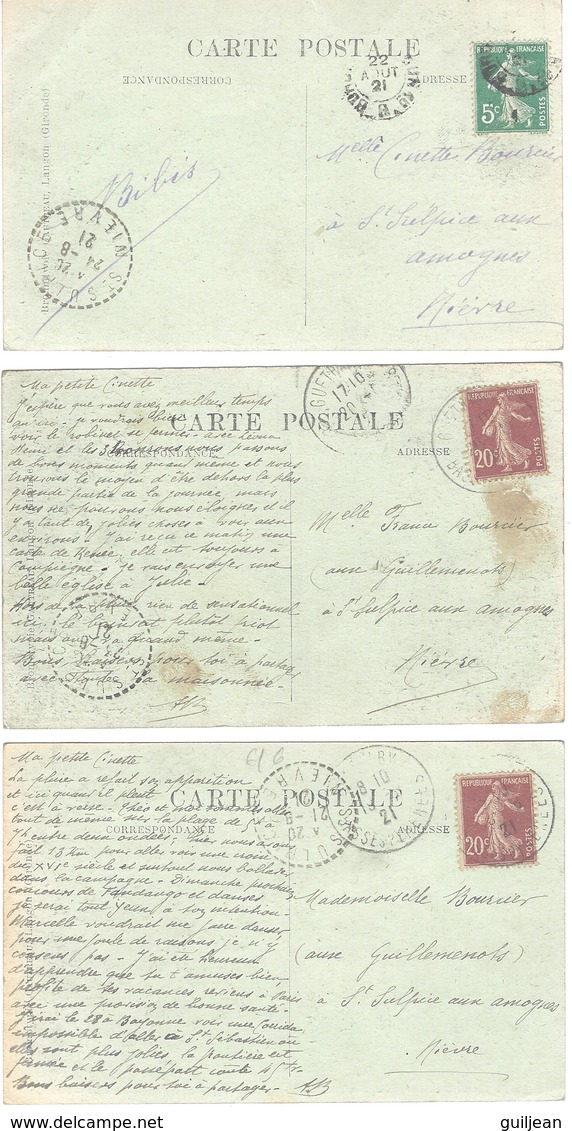 CARTE POSTALE
CORRESPONDANCE
ADRESSE
REPUBLIQUE FRANÇAISE
5c
POSTES
22
AOUT
21
Melle Cinette Bourcier
à St Sulpice aux
amognes
Nièvre
Bibis
Langon (Gironde)
NIEVRE
24 -8
21
Ma petite Cinette
J'espère que vous avez meilleur temps
qu'ici - je voudrais bien
voir le robinet se fermer - avec
nous passons
de bons moments quand même et nous
trouvons le moyen d'être dehors la plus
grande partie de la journée, mais
nous ne pouvons nous éloigner et il
y a tant de jolies choses à voir aux
environs - J'ai reçu ce matin une
carte de Renée, elle est toujours à
Compiègne - Je vais envoyer une
belle église à Julie -
Hors de la pluie rien de sensationnel
ici, le bain
mais on y va quand même -
Bons baisers pour toi à partager
avec toute la maisonnée -
CARTE POSTALE
CORRESPONDANCE
ADRESSE
GUETHARY
17-10
20
REPUBLIQUE FRANÇAISE
20c
POSTES
Melle France Bourcier
(aux Guillemenots)
à St Sulpice aux amognes
Nièvre
Ma petite Cinette
La pluie a refait son apparition
et ici quand il pleut
c'est à verse - Théo et moi
tout de même sur la plage de 5h à
7h entre deux ondées - Hier nous avons
fait 13 Km pour aller voir une noix
du XVIe siècle et surtout nous ballader
dans la campagne - Dimanche prochain
concours de Fandango et danses
je serai tout yeux à ton intention -
Marcelle voudrait me faire danser
pour une foule de raisons je n'y
consens pas - J'ai été heureux
d'apprendre que tu t'amuses bien,
profite de tes vacances reviens à Paris
avec une provision de bonne santé -
J'irai le 28 à Bayonne voir une Corrida
impossible d'aller à St Sébastien où
elles sont plus jolies la frontière est
fermée et le passeport coûte 45 frs
Bons baisers pour toi à partager -
CARTE POSTALE
CORRESPONDANCE
ADRESSE
NIEVRE
18 10
21
REPUBLIQUE FRANÇAISE
20c
POSTES
Mademoiselle Bourcier
(aux Guillemenots)
à St Sulpice aux amognes
Nièvre
http://www.delcampe.net
guiljean